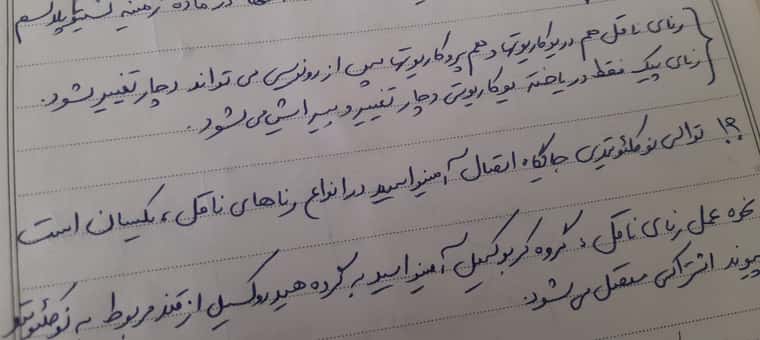 در ماده زمینه سیتوپلاسم
رنای ناقل هم در یوکاریوتها و هم پروکاریوتها پس از رونویسی می تواند دچار تغییر شود.
رنای پیک فقط در یاخته یوکاریوتی دچار تغییر و پیرایش می شود.
؟! توالی نوکلئوتیدی جایگاه اتصال آمینواسید در انواع رناهای ناقل، یکسان است
نحوه عمل رنای ناقل: گروه کربوکسیل آمینو اسید به گروه هیدروکسیل از قند مربوط به نوکلئوتید
پیوند اشتراکی منتقل می شود.